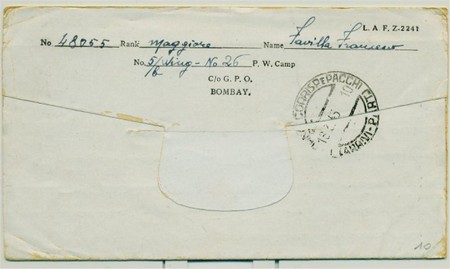 L. A. F. Z-2241
No. 48055 Rank Maggiore Name Favilla Francesco
No. 5/Wing - No 26 P. W. Camp
C/o G. P. O.
BOMBAY.
CORRISP. E PACCHI
10